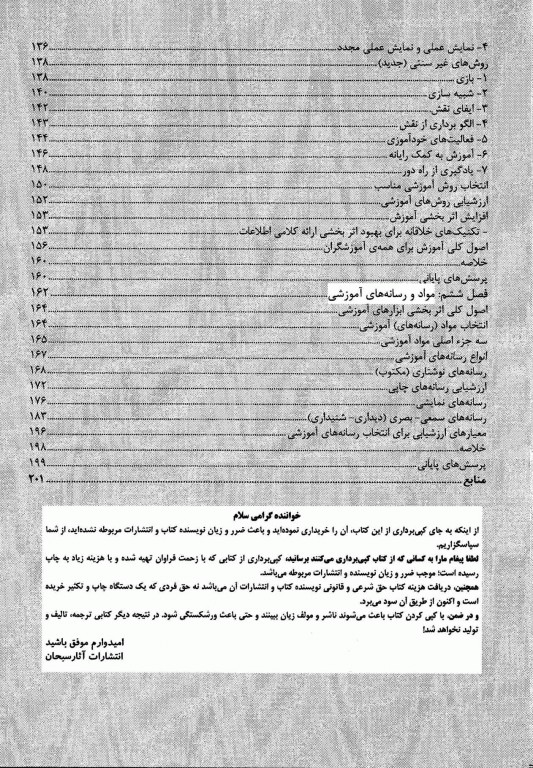 ۴- نمایش عملی و نمایش عملی مجدد ۱۳۶
روش‌های غیر سنتی (جدید) ۱۳۸
۱- بازی ۱۳۸
۲- شبیه سازی ۱۴۰
۳- ایفای نقش ۱۴۲
۴- الگو برداری از نقش ۱۴۳
۵- فعالیت‌های خودآموزی ۱۴۴
۶- آموزش به کمک رایانه ۱۴۶
۷- یادگیری از راه دور ۱۴۸
انتخاب روش آموزشی مناسب ۱۵۰
ارزشیابی روش‌های آموزشی ۱۵۲
افزایش اثر بخشی آموزش ۱۵۳
- تکنیک‌های خلاقانه برای بهبود اثر بخشی ارائه کلامی اطلاعات ۱۵۳
اصول کلی آموزش برای همه‌ی آموزشگران ۱۵۶
خلاصه ۱۶۰
پرسش‌های پایانی ۱۶۰
فصل ششم: مواد و رسانه‌های آموزشی ۱۶۲
اصول کلی اثر بخشی ابزارهای آموزشی ۱۶۴
انتخاب مواد (رسانه‌های) آموزشی ۱۶۴
سه جزء اصلی مواد آموزشی ۱۶۵
انواع رسانه‌های آموزشی ۱۶۷
رسانه‌های نوشتاری (مکتوب) ۱۶۸
ارزشیابی رسانه‌های چاپی ۱۷۲
رسانه‌های نمایشی ۱۷۶
رسانه‌های سمعی- بصری (دیداری- شنیداری) ۱۸۳
معیارهای ارزشیابی برای انتخاب رسانه‌های آموزشی ۱۹۶
خلاصه ۱۹۸
پرسش‌های پایانی ۱۹۹
منابع ۲۰۱
خواننده گرامی سلام
از اینکه به جای کپی‌برداری از این کتاب، آن را خریداری نموده‌اید و باعث ضرر و زیان نویسنده کتاب و انتشارات مربوطه نشده‌اید، از شما
سپاسگزاریم.
لطفا پیغام مارا به کسانی که از کتاب کپی‌برداری می‌کنند برسانید: کپی‌برداری از کتابی که با زحمت فراوان تهیه شده و با هزینه زیاد به چاپ
رسیده است؛ موجب ضرر و زیان نویسنده و انتشارات مربوطه می‌باشد.
همچنین، دریافت هزینه کتاب حق شرعی و قانونی نویسنده کتاب و انتشارات آن می‌باشد نه حق فردی که یک دستگاه چاپ و تکثیر خریده
است و اکنون از طریق آن سود می‌برد.
و در ضمن، با کپی کردن کتاب باعث می‌شوند ناشر و مولف زیان ببینند و حتی باعث ورشکستگی شود. در نتیجه دیگر کتابی ترجمه، تالیف و
تولید نخواهد شد!
امیدوارم موفق باشید
انتشارات آثارسبحان